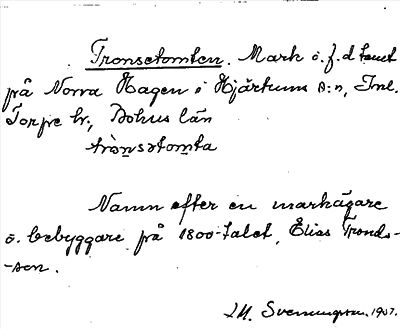 Tronsetomten. Mark o. f. d tomt
på Norra Hagen i Hjärtums s:n, Inl.
Torpe hr., Bohus län
trònsətomta
Namn efter en markägare
o. bebyggare på 1800-talet, Elias Tronds-
-son.
J.M. Svenungsson. 1907.